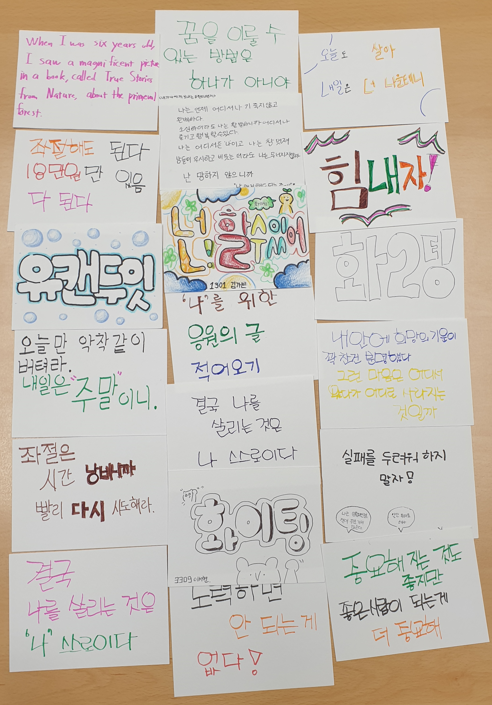 When I was six years old,
I saw a magnificent picture
in a book, called True Stories
from Nature, about the primeval
forest.
좌절해도 된다
18명원만 있음
다 된다
유캔두잇
오늘만 악착같이
버텨라.
내일은 "주말"이니.
좌절은
시간 낭비니까
빨리 다시 시도해라.
결국
나를 살리는 것은
"나" 스스로이다
꿈을 이룰 수
있는 방법은
하나가 아니야
나는 언제 어디서나 기 죽지않고
나는 어디서든 나이고 나는 전
난 변하지 않으니까
넌! 할 수 있어
1301
"나"를 위한
응원의 글
적어오기
결국 나를
살리는 것은
나 스스로이다
화이팅
노력하면
안 되는게
없다!
오늘도 살아
내일은 더 나을테니
힘내자!
화2팅
내 안에 희망과 기쁨이
꽉 찼던
그런 마음은 어디서
어디로 사라지는
것일까
실패를 두려워 하지
말자!
중요해 지는 것도
좋지만
좋은사람이 되는게
더 중요해